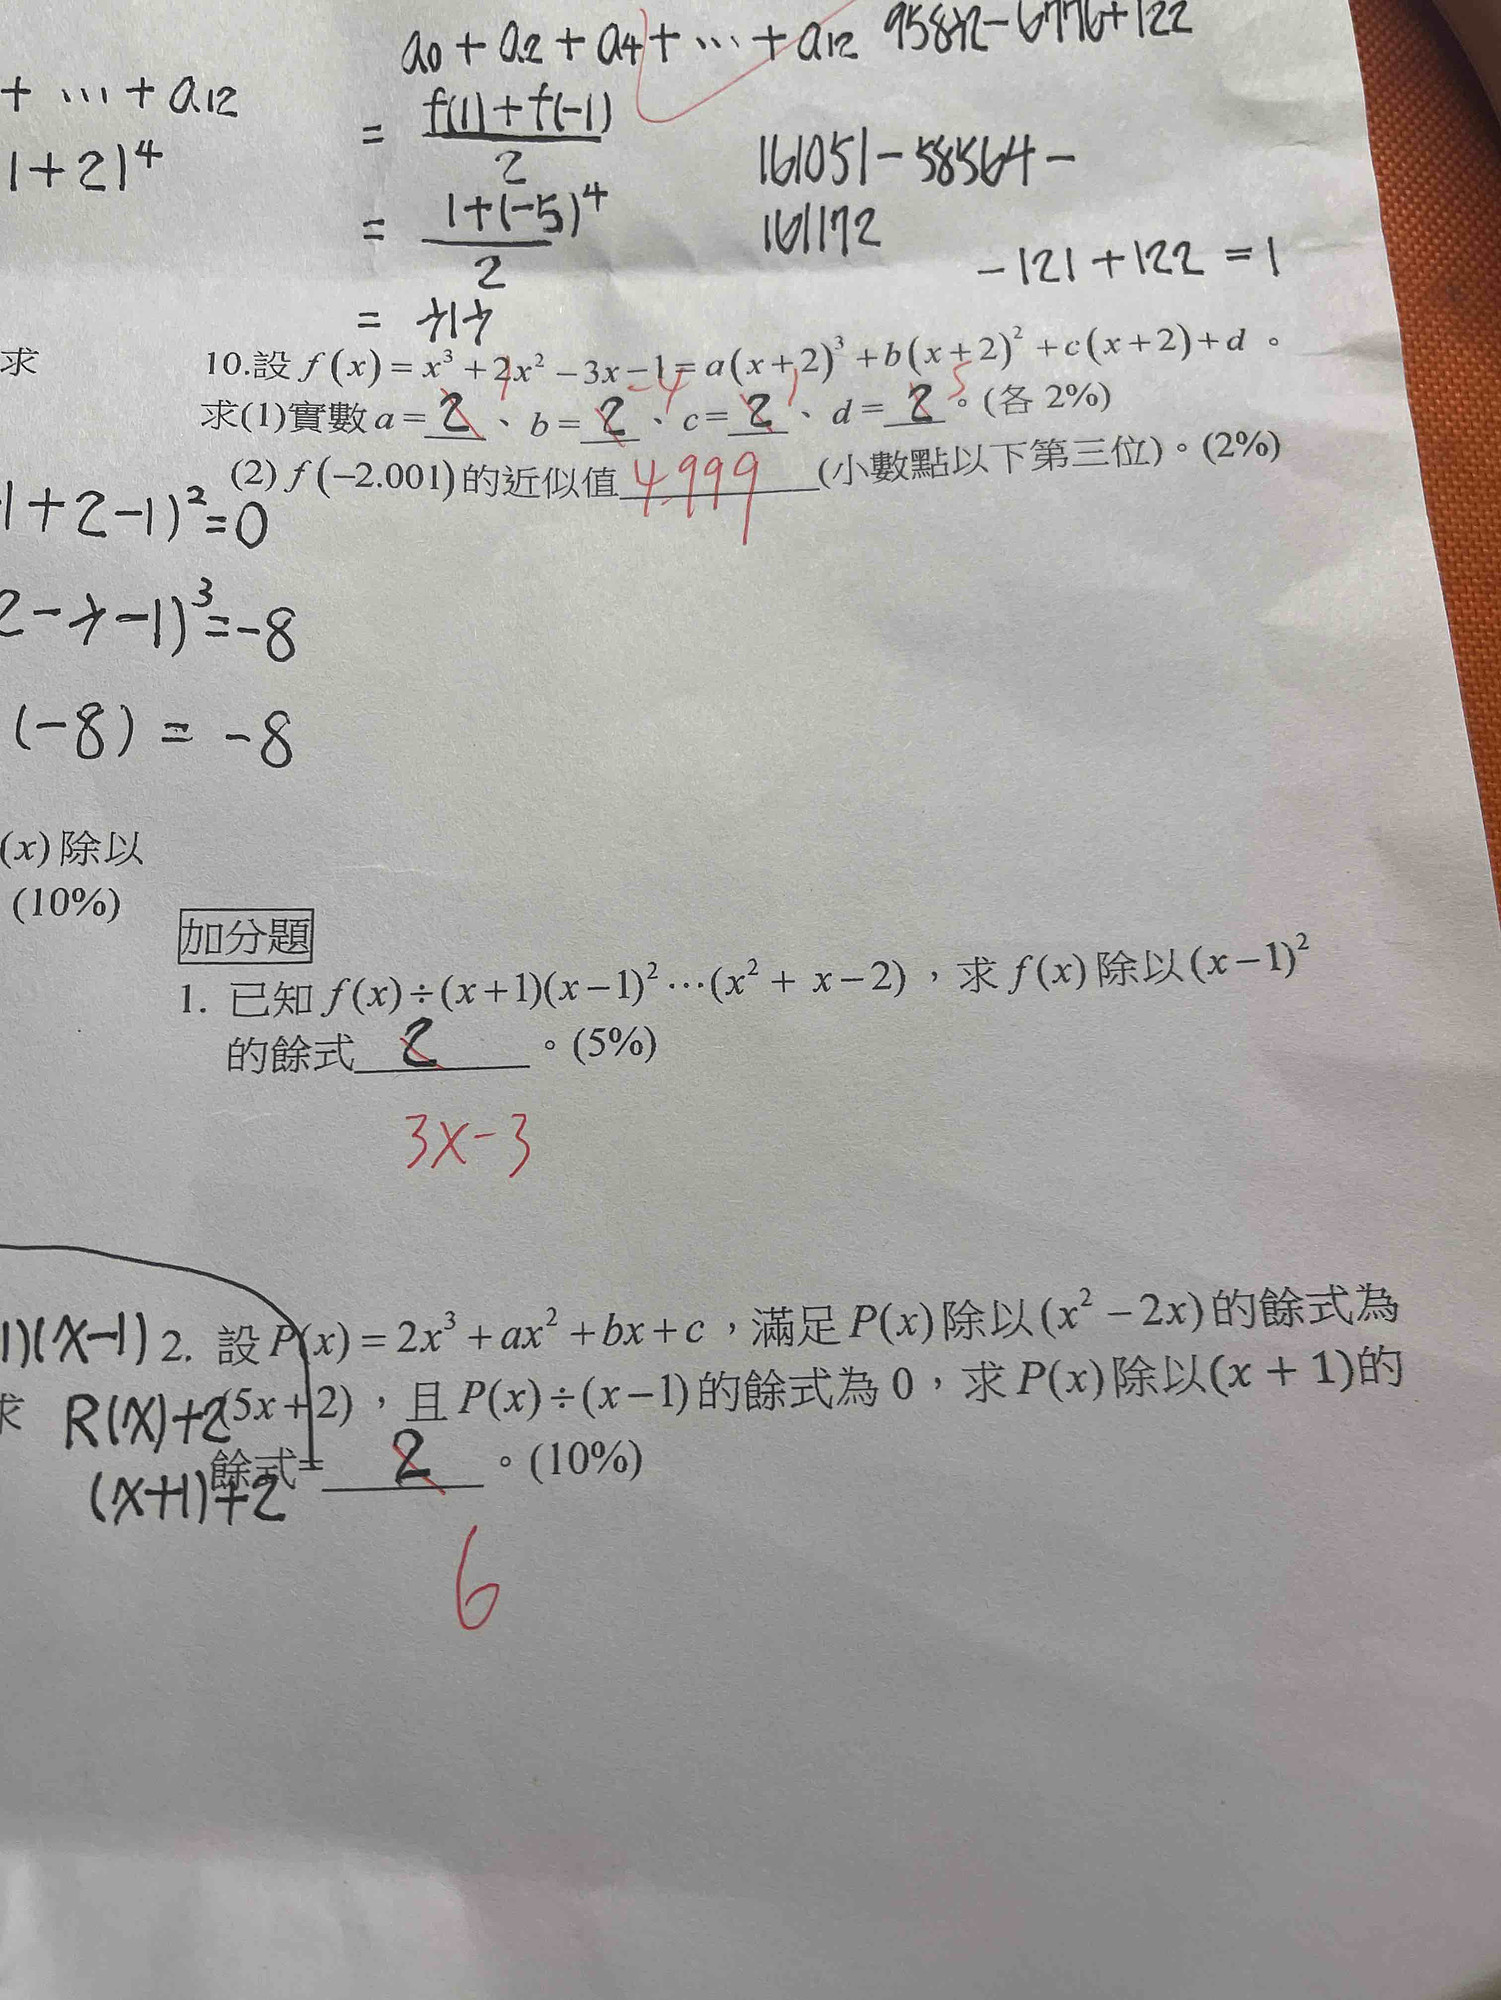 a0 + a2 + a4 + … + a12 95832 - 6776 + 122
+ … + a12
= f(1) + f(-1) / 2
1+2)⁴
161051 - 58564 -
= 1 + (-5)⁴ / 2
161172
-121 + 122 = 1
=
求
10.設 f(x) = x³ + 2x² − 3x − 1 = a(x+2)³ + b(x+2)² + c(x+2) + d 。
1 -4 1 5
求(1)實數 a = 2 、 b = 2 、 c = 2 、 d = 2 。(各 2%)
(2) f(−2.001)的近似值 4.999 (小數點以下第三位)。(2%)
1 + 2 - 1)² = 0
-1)³ = -8
(-8) = -8
(x) 除以
(10%)
加分題
1. 已知 f(x)÷(x+1)(x−1)²⋯(x² + x−2),求 f(x)除以(x−1)²
的餘式 2 。(5%)
3x-3
1)(x-1)
2. 設 P(x) = 2x³ + ax² + bx + c,滿足 P(x)除以(x² − 2x)的餘式為
求
R(x)+2
(5x+2),且 P(x)÷(x−1)的餘式為 0,求 P(x)除以(x + 1)的
餘式= 2 。(10%)
(x+1)+2
6